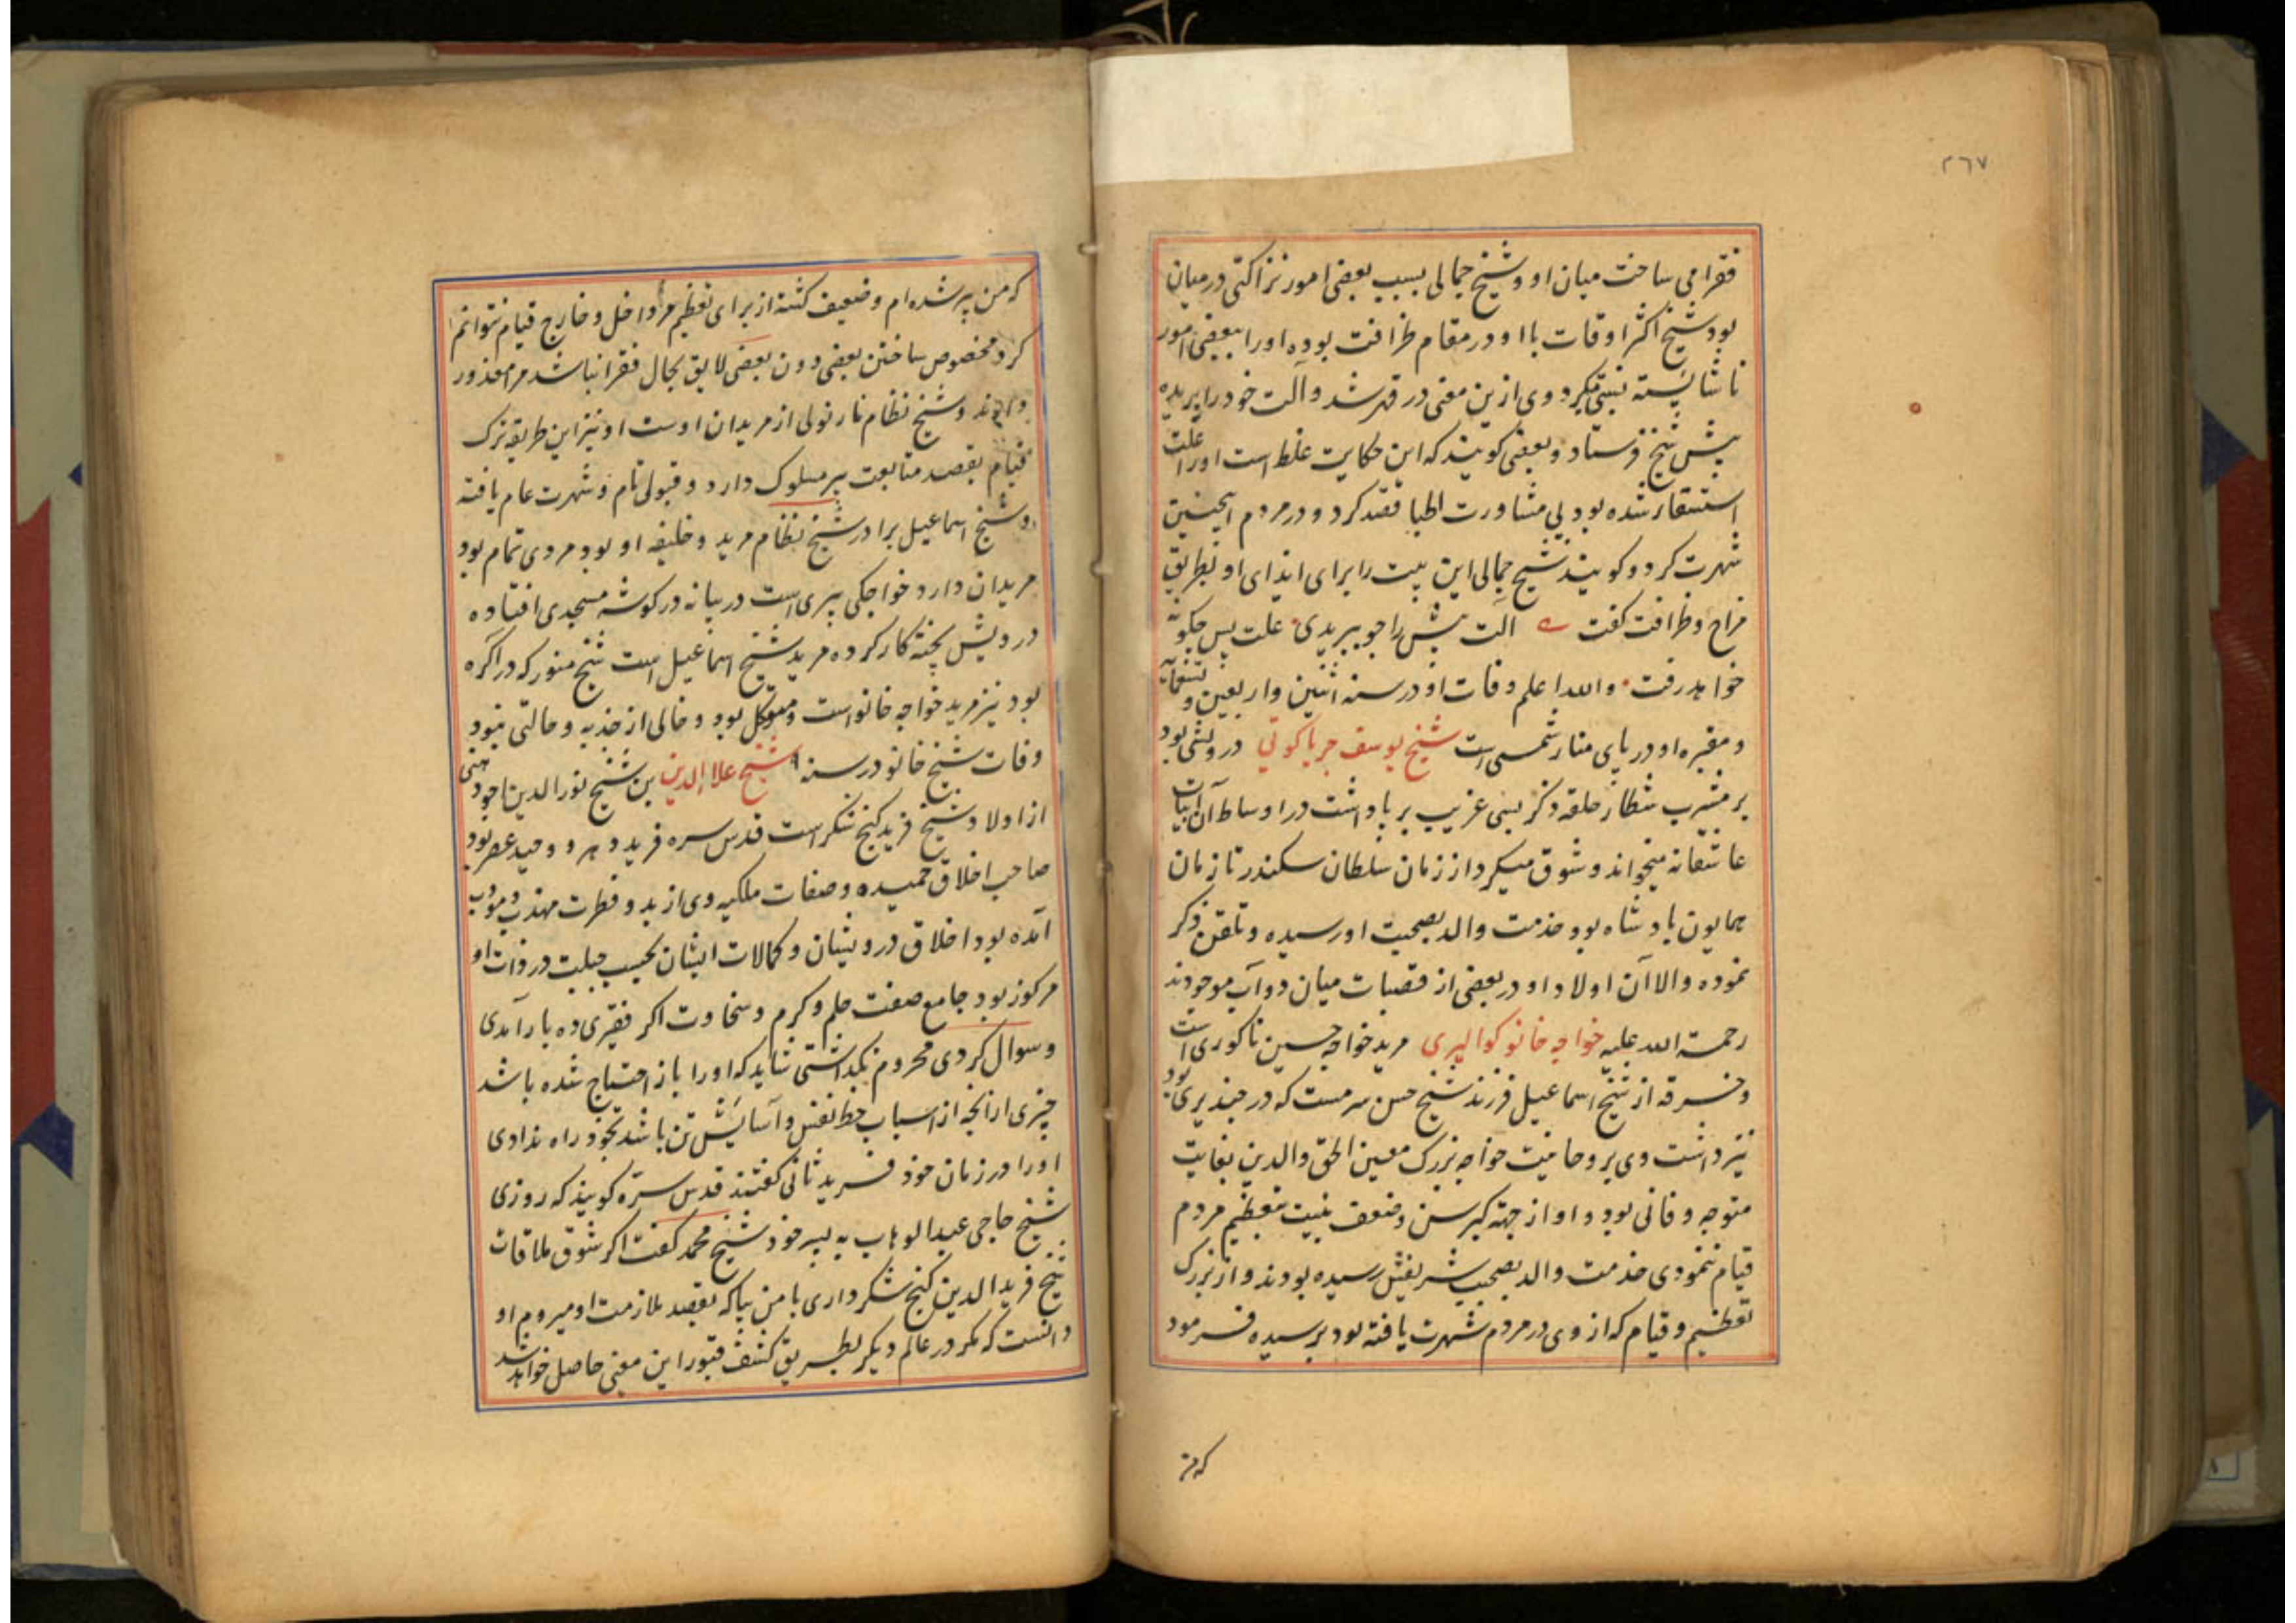 ۲۶۷
فقرا می ساخت میان او و شیخ جمالی بسبب بعضی امور نزاکتی درمیان
بود شیخ اکثر اوقات با او در مقام ظرافت بوده او را ببعضی امور
ناشایسته نسبت میکرد وی ازین معنی در قهر شد و آلت خود را بریده
پیش شیخ فرستاد و بعضی کویند که این حکایت غلط است او را علت
استسقا شده بود بی مشاورت اطبا فصد کرد و در مردم اینچنین
شهرت کرد و کویند شیخ جمالی این بیت را برای ایذای او بطریق
مزاح و ظرافت کفت آلت پیش را چو ببریدی علت پس چکونه
خواهد رفت والله اعلم وفات او در سنه اثنین و اربعین و تسعمائه
و مقبره او در پای منار شمسی است شیخ یوسف چریاکوتی درویشی بود
بر مشرب شطار حلقه ذکر بسی غریب برپا داشت در اوساط آن ابیات
عاشقانه میخواند و شوق میکرد از زمان سلطان سکندر تا زمان
همایون بادشاه بود خدمت والد بصحبت او رسیده و تلقین ذکر
نموده والاآن اولاد او در بعضی از قصبات میان دوآب موجودند
رحمة الله علیه خواجه خانو کوالیری مرید خواجه حسین ناکوری است
و خرقه از شیخ اسماعیل فرزند شیخ حسن سرمست که در چندیری بود
نیز داشت وی بروحانیت خواجه بزرک معین الحق والدین بغایت
متوجه و فانی بود و او از جهة کبر سن و ضعف بنیت بتعظیم مردم
قیام ننمودی خدمت والد بصحبت شریفش رسیده بودند و از ترک
تعظیم و قیام که از وی در مردم شهرت یافته بود پرسیده فرمود
که من
که من پیر شده ام و ضعیف کشته از برای تعظیم هر داخل و خارج قیام نتوانم
کرد مخصوص ساختن بعضی دون بعضی لایق بحال فقرا نباشد مرا معذور
دارند و شیخ نظام نارنولی از مریدان اوست او نیز این طریقه ترک
قیام بقصد متابعت پیر مسلوک دارد و قبولی تام و شهرت عام یافته
و شیخ اسماعیل برادر شیخ نظام مرید و خلیفه او بود مردی تمام بود
مریدان دارد خواجکی پیری است در بیانه در کوشه مسجدی افتاده
درویش پخته کار کرده مرید شیخ اسماعیل است شیخ منور که در آکره
بود نیز مرید خواجه خانو است و متوکل بود و خالی از جذبه و حالتی نبود
وفات شیخ خانو در سنه شیخ علاالدین بن شیخ نورالدین اجودهنی
از اولاد شیخ فرید کنج شکر است قدس سره فرید دهر و وحید عصر بود
صاحب اخلاق حمیده و صفات ملکیه وی از بدو فطرت مهذب و مؤدب
آمده بود اخلاق درویشان و کمالات ایشان بحسب جبلت در ذات او
مرکوز بود جامع صفت حلم و کرم و سخاوت اکر فقیری ده بار آمدی
و سوال کردی محروم نکذاشتی شاید که او را باز احتیاج شده باشد
چیزی ازانچه از اسباب حظ نفس و آسایش تن باشد بخود راه ندادی
او را در زمان خود فرید ثانی کفتند قدس سره کویند که روزی
شیخ حاجی عبدالوهاب به پسر خود شیخ محمد کفت اکر شوق ملاقات
شیخ فریدالدین کنج شکر داری با من بیا که بقصد ملازمت او میروم او
دانست که مکر در عالم دیکر بطریق کشف قبور این معنی حاصل خواهد شد